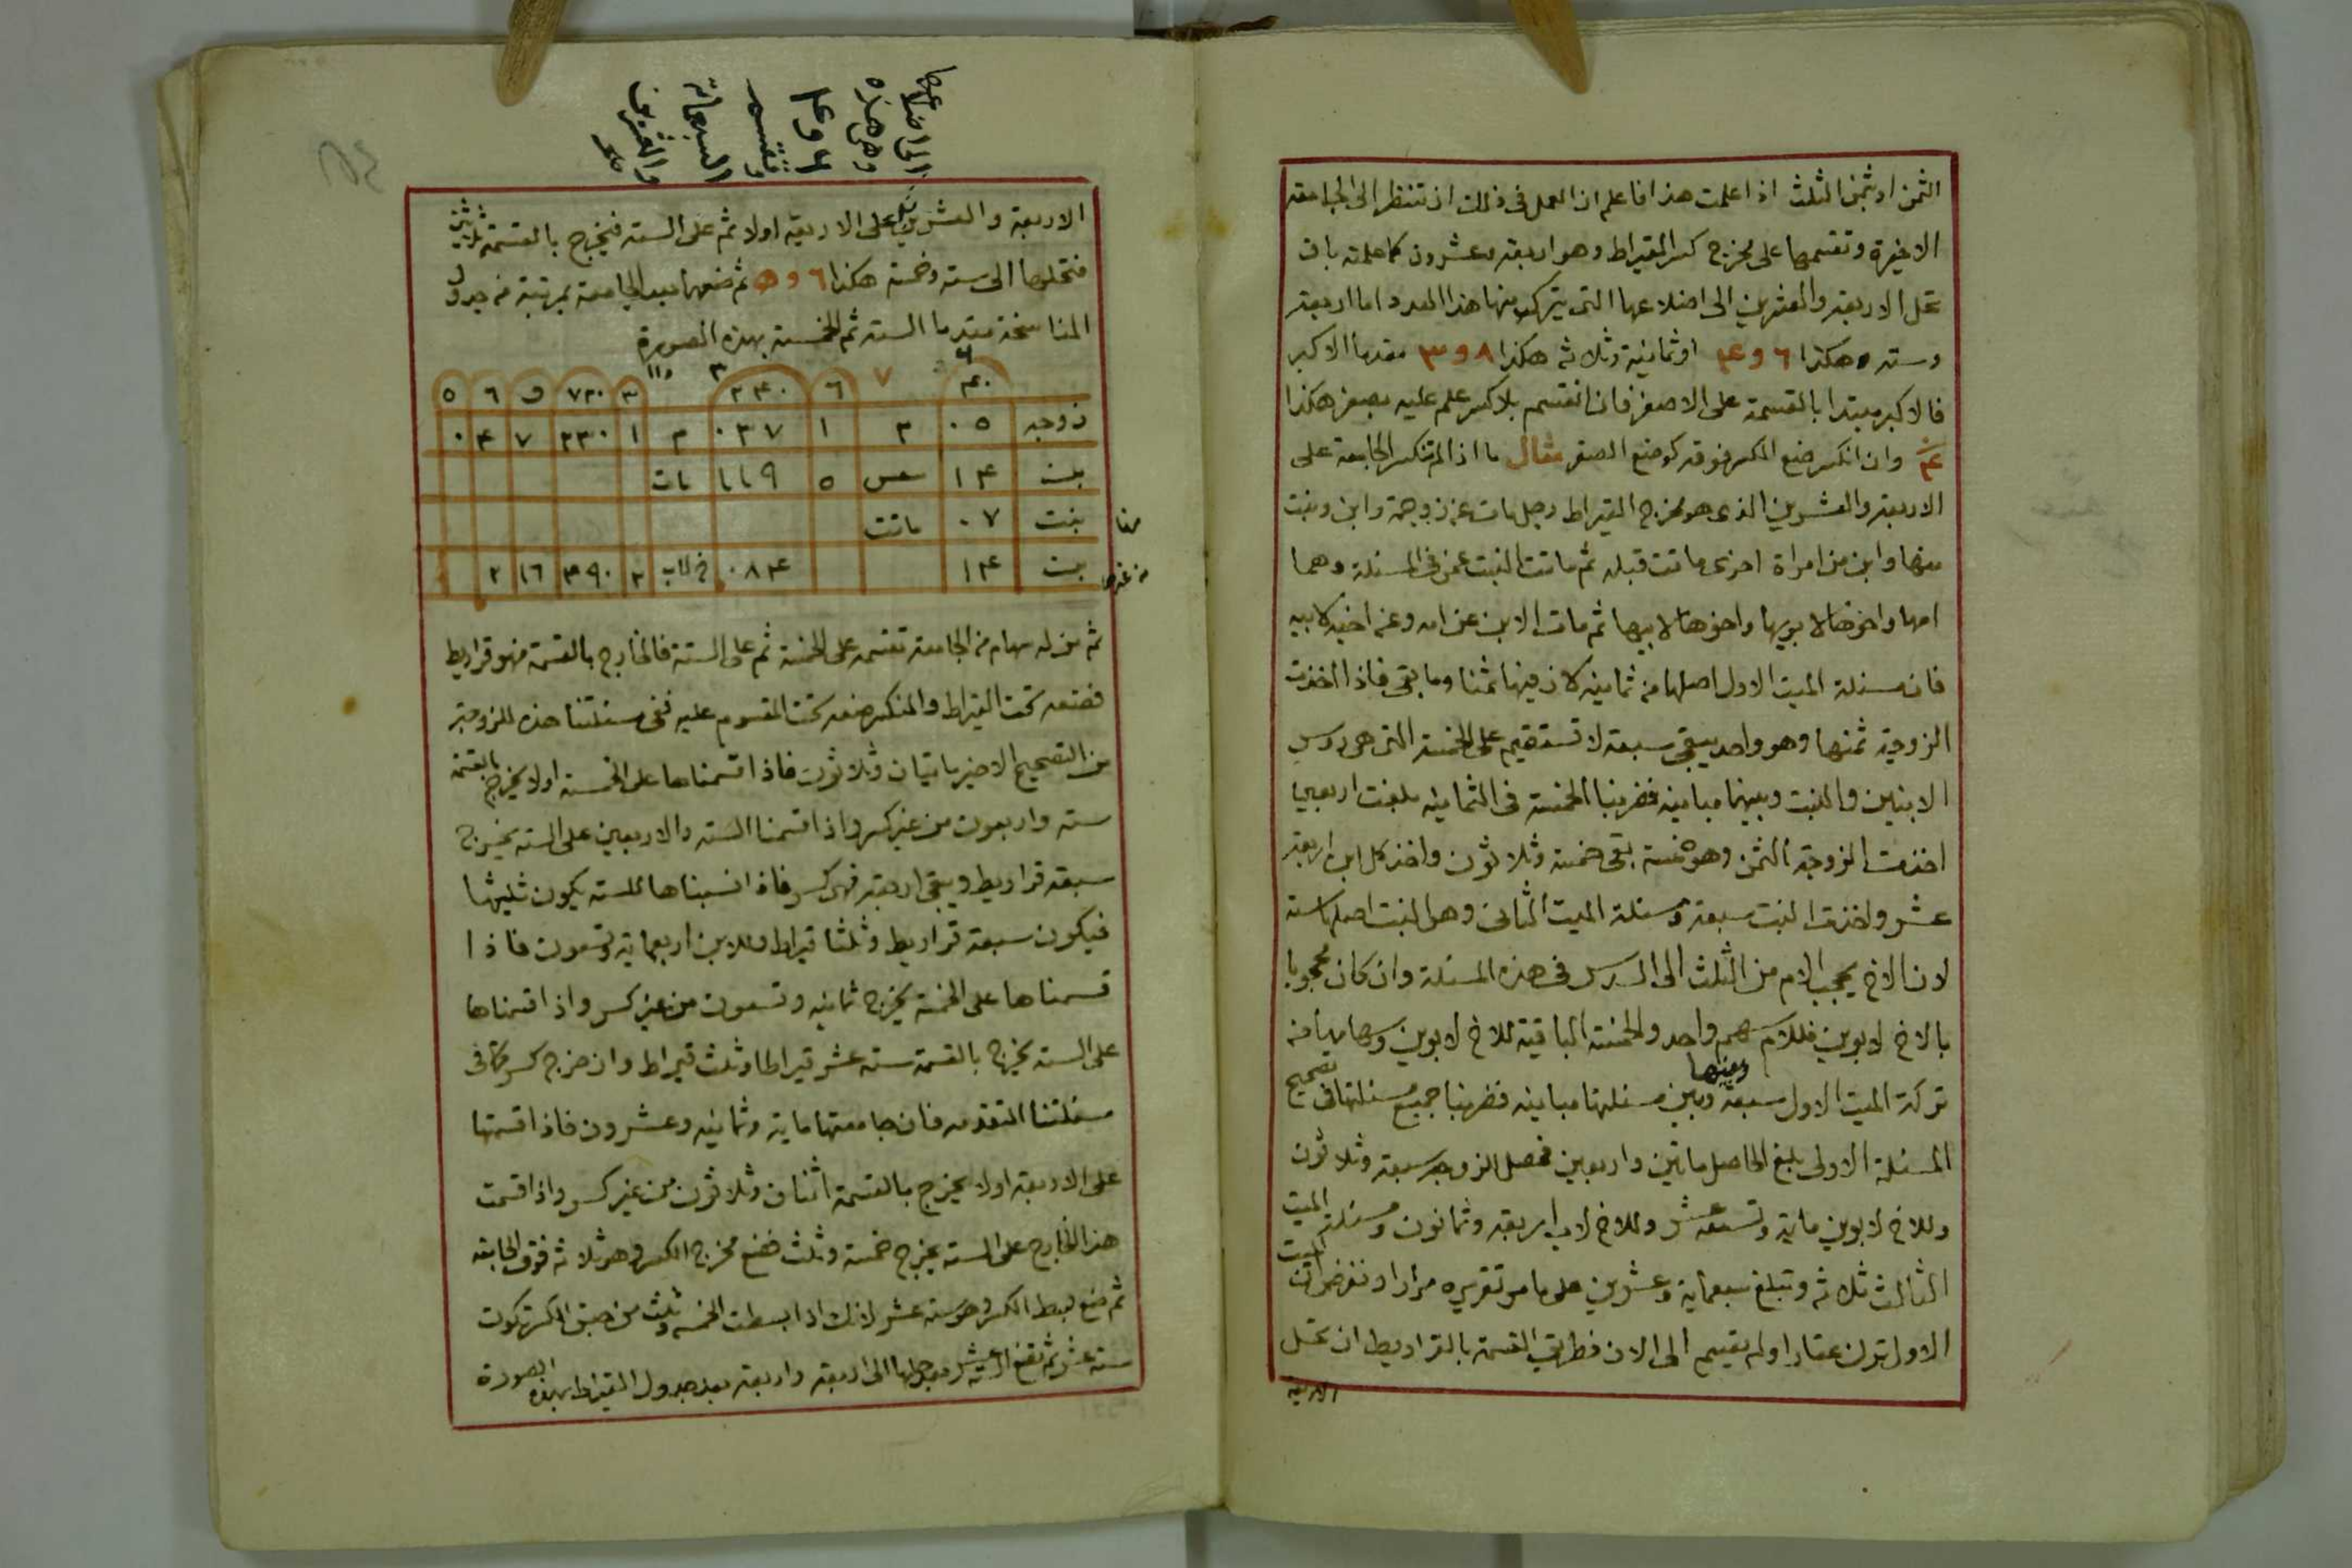 الثمن او ثمن الثلث اذا علمت هذا فاعلم ان العمل فى ذلك ان تنظر الى الجامعة
الاخيرة وتقسمها على مخرج كسر القيراط وهو اربعة وعشرون كاملة بان
تحل الاربعة والعشرين الى اضلاعها التى يتركب منها هذا العدد اما اربعة
وستة هكذا ٦ و ۴ او ثمانية وثلاثة هكذا ٨ و ٣ مقدما الاكبر
فالاكبر مبتدا بالقسمة على الاصغر فان انقسم بلا كسر علم عليه بصفر هكذا
وان انكسر ضع الكسر فوقه كوضع الصفر مثال ما اذا لم تنكسر الجامعة على
الاربعة والعشرين الذى هو مخرج القيراط رجل مات عن زوجة وابن وبنت
منها وابن من امراة اخرى ماتت قبله ثم ماتت البنت عمن فى المسئلة وهما
امها واخوها لابويها واخوها لابيها ثم مات الابن عن امه وعن اخيه لابيه
فان مسئلة الميت الاول اصلها من ثمانية لان فيها ثمنا وما بقى فاذا اخذت
الزوجة ثمنها وهو واحد يبقى سبعة لا تستقيم على الخمسة التى هى روس
الابنين والبنت وبينهما مباينة فضربنا الخمسة فى الثمانية بلغت اربعين
اخذت الزوجة الثمن وهو خمسة بقى خمسة وثلاثون واخذ كل ابن اربعة
عشر واخذت البنت سبعة ومسئلة الميت الثانى وهو البنت اصلها ستة
لان الاخ يحجب الام من الثلث الى السدس فى هذه المسئلة وان كان محجوبا
بالاخ لابوين فللام سهم واحد والخمسة الباقية للاخ لابوين وسهامها من
تركة الميت الاول سبعة وبينها وبين مسئلتها مباينة فضربنا جميع مسئلتها فى تصحيح
المسئلة الاولى بلغ الحاصل مائتين واربعين فحصل للزوجة سبعة وثلاثون
وللاخ لابوين مائة وتسعة عشر وللاخ لاب اربعة وثمانون ومسئلة الميت
الثالث ثلاثة وتبلغ سبعمائة وعشرين على ما مر تقريره مرارا ونفرض ان الميت
الاول ترك عقارا ولم يقسم الى الان فطريق القسمة بالقراريط ان تحل
الاربعة
الى اضلاعها
وهى هذه
٦ و ۴
وتقسم
السبعمائة
والعشرين
الاربعة والعشرين على الاربعة اولا ثم على الستة فيخرج بالقسمة ثلاثين
فتحلها الى ستة وخمسة هكذا ٦ و ٥ ثم ضعهما بعد الجامعة بمرتبة من جدول
المناسخة مقدما الستة ثم الخمسة بهذه الصورة
۴٠ ٧ ٦ ٢۴٠ ٣ ٧٢٠ و ٦ ٥
زوجة ٠٥ ٣ ١ ٠٣٧ ٣ ١ ٢٣٠ ٧ ۴ ٠
بن ١۴ ٥ ١١٩ مات
بنت ٠٧ ماتت
بن ١۴ ٠٨۴ ٢ ٣٩٠ ١٦ ٢
ثم من له سهام من الجامعة تقسمه على الخمسة ثم على الستة فالخارج بالقسمة فهو قراريط
فضعه تحت القيراط والمنكسر ضعه تحت المقسوم عليه ففى مسئلتنا هذه للزوجة
من التصحيح الاخير مايتان وثلاثون فاذا قسمناها على الخمسة اولا يخرج بالقسمة
ستة واربعون من غير كسر واذا قسمنا الستة والاربعين على الستة يخرج
سبعة قراريط ويبقى اربعة فهى كسر فاذا نسبناها للستة يكون ثلثيها
فيكون سبعة قراريط وثلثا قيراط وللابن اربعماية وتسعون فاذا
قسمناها على الخمسة يخرج ثمانية وتسعون من غير كسر واذا قسمناها
على الستة يخرج بالقسمة ستة عشر قيراطا وثلث قيراط وان خرج كسر كما فى
مسئلتنا المتقدمة فان جامعتها ماية وثمانية وعشرون فاذا قسمتها
على الاربعة اولا يخرج بالقسمة اثنان وثلاثون من غير كسر واذا قسمت
هذا الخارج على الستة يخرج خمسة وثلث فضع مخرج الكسر وهو ثلاثة فوق الجامعة
ثم ضع بسط الكسر وهو ستة عشر لانك اذا بسطت الخمسة وثلث من جنس الكسر تكون
ستة عشر ثم تضع الستة عشر بعد حلها الى اربعة واربعة بعد جدول القيراط بهذه الصورة